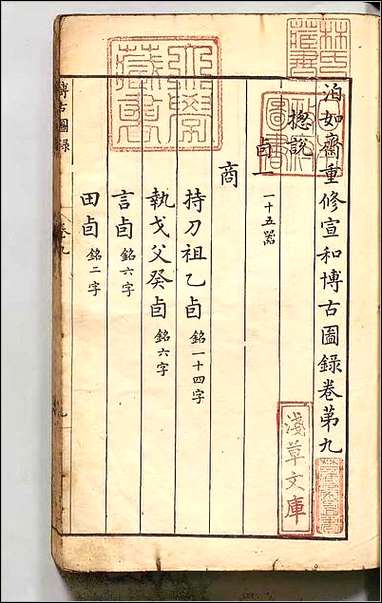 泊如齋重修宣和博古圖錄卷第九
揔說
卣一 一十五器
商
持刀祖乙卣 銘一十四字
執戈父癸卣 銘六字
言卣 銘六字
田卣 銘二字
博古圖錄 卷九
淺草文庫
林氏藏書